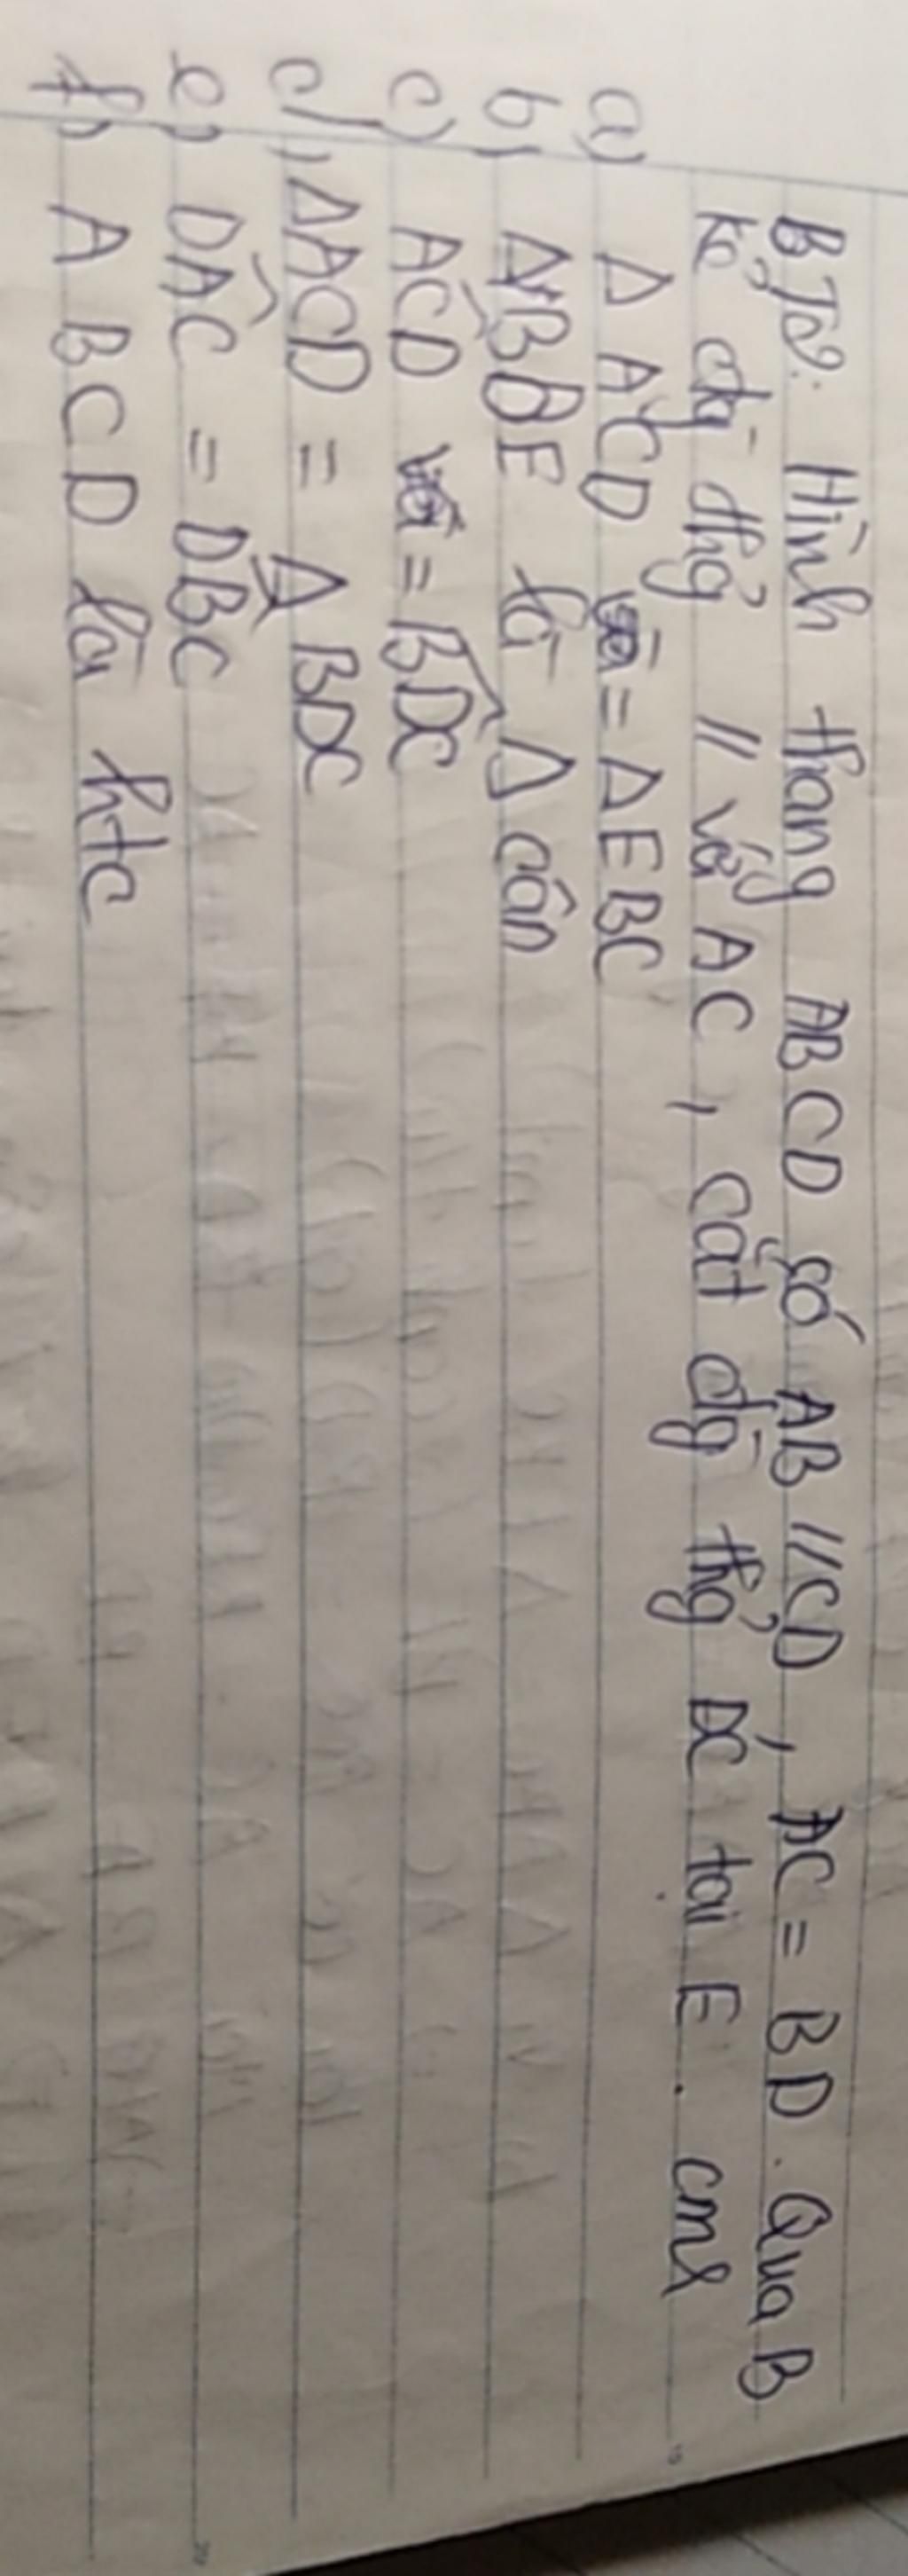 BT2: Hình thang ABCD có AB //CD, AC = BD. Qua B
kẻ đg thg // với AC, cắt đg thg DC tại E. cmr
a) Δ ACD = Δ EBC
b) BDE là Δ cân
c) ACD = BDC
d, ΔACD = Δ BDC
e, DAC = DBC
f, A B C D là htc